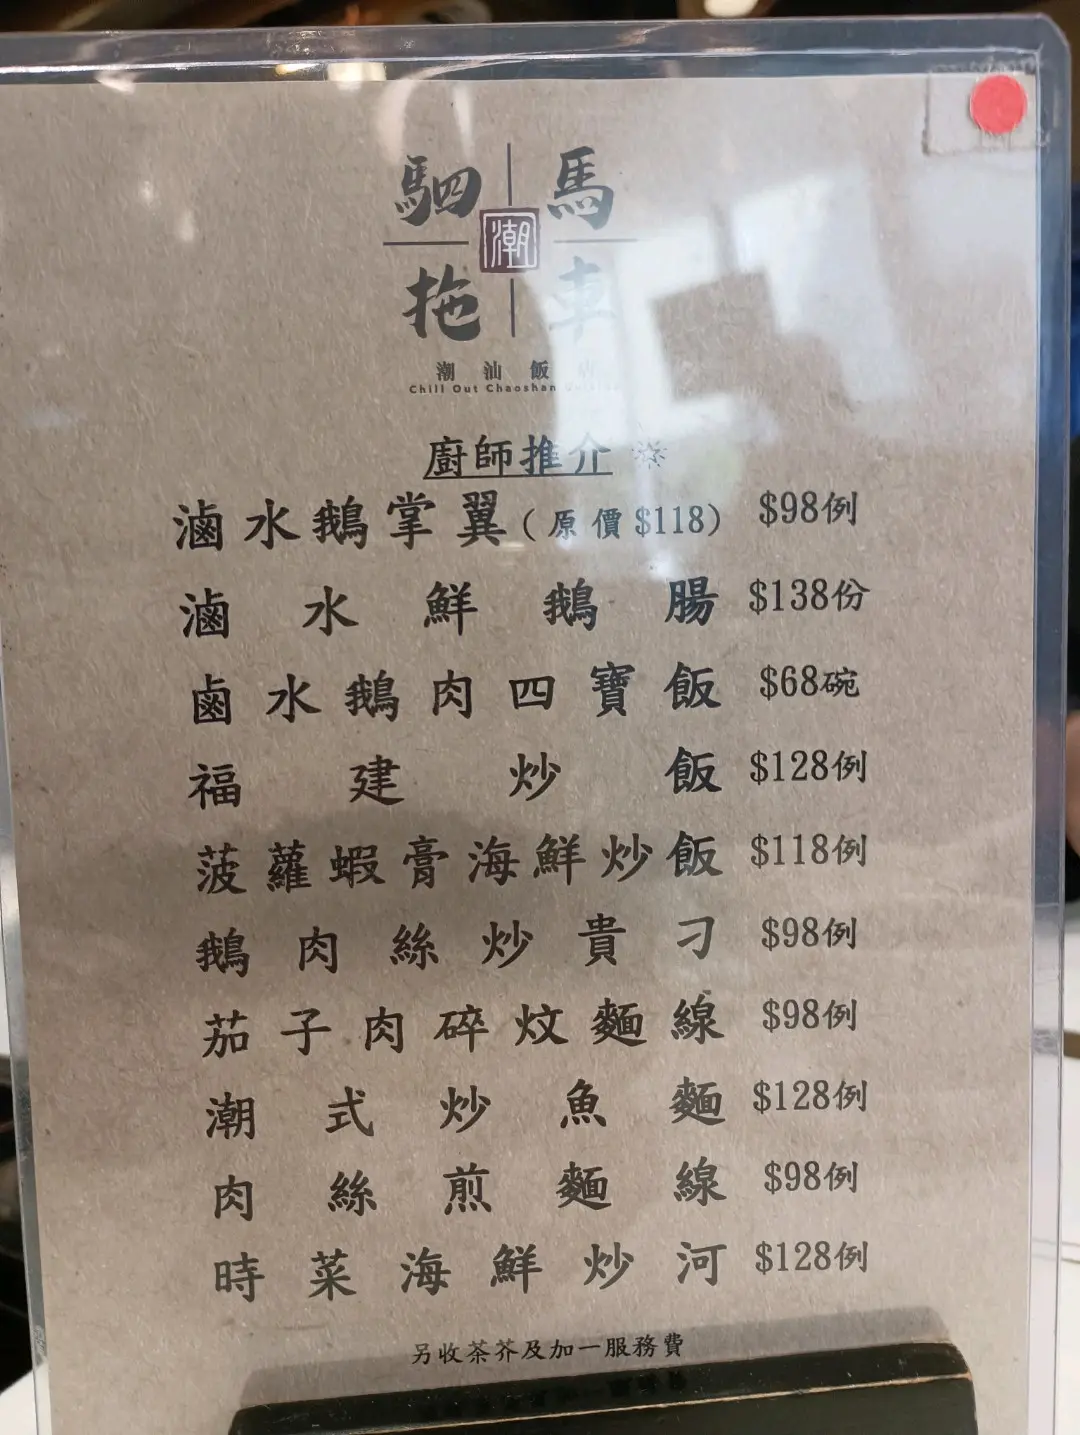 駟馬
潮
拖車
潮汕飯店
Chill Out Chaoshan
廚師推介
滷水鵝掌翼(原價$118) $98例
滷水鮮鵝腸 $138份
鹵水鵝肉四寶飯 $68碗
福建炒飯 $128例
菠蘿蝦膏海鮮炒飯 $118例
鵝肉絲炒貴刁 $98例
茄子肉碎炆麵線 $98例
潮式炒魚麵 $128例
肉絲煎麵線 $98例
時菜海鮮炒河 $128例
另收茶芥及加一服務費